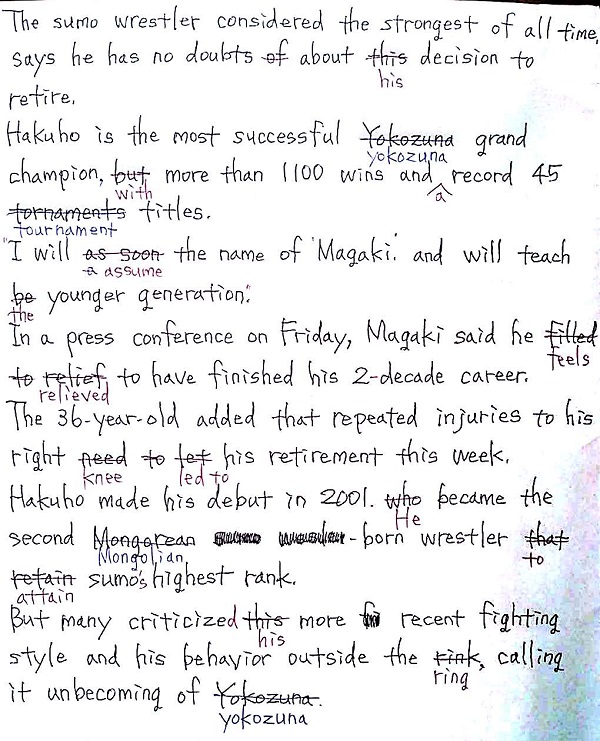 The sumo wrestler considered the strongest of all time,
says he has no doubts of about this decision to
his
retire.
Hakuho is the most successful Yokozuna grand
yokozuna
champion, but more than 1100 wins and record 45
with a
tornaments titles.
tournament
"I will as soon the name of 'Magaki.' and will teach
a assume
be younger generation."
the
In a press conference on Friday, Magaki said he filled
feels
to relief to have finished his 2-decade career.
relieved
The 36-year-old added that repeated injuries to his
right need to let his retirement this week.
knee led to
Hakuho made his debut in 2001. who became the
He
second Mongorean -born wrestler that
Mongolian to
retain sumo's highest rank.
attain
But many criticized this more recent fighting
his
style and his behavior outside the rink, calling
ring
it unbecoming of Yokozuna.
yokozuna